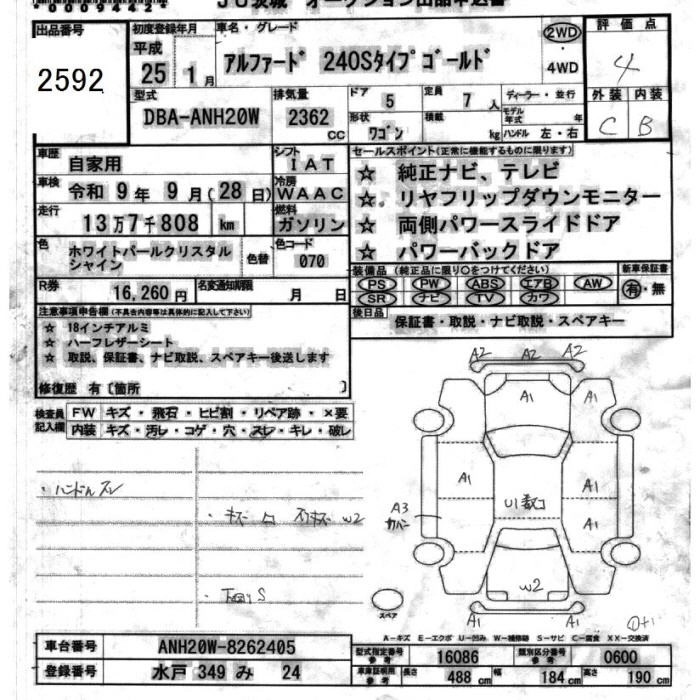 *0009442*
JU茨城 オークション出品申込書
出品番号
2592
初度登録年月
平成
25 1月
車名・グレード
アルファード 240Sタイプゴールド
2WD
・4WD
評価点
4
外装 内装
C B
型式
DBA-ANH20W
排気量
2362
CC
ドア 5
定員 7人
ディーラー・並行
形状 ワゴン
積載 kg
モデル年式 年
ハンドル 左・右
車歴 自家用
シフト IAT
車検 令和 9年 9月(28日)
冷房 WAAC
走行 13万7千808 km
燃料 ガソリン
色 ホワイトパールクリスタルシャイン
色替
色コード 070
R券 16,260円
名変通知期限 月 日
セールスポイント(正常に機能するものに限ります)
☆ 純正ナビ、テレビ
☆. リヤフリップダウンモニター
☆ 両側パワースライドドア
☆ パワーバックドア
装備品 (純正品に限り○をつけてください)
新車保証書
PS PW ABS エアB AW
SR ナビ TV カワ
有・無
後日品 保証書・取説・ナビ取説・スペアキー
注意事項申告欄(不具合内容等は具体的に記入して下さい)
☆ 18インチアルミ
☆ ハーフレザーシート
☆ 取説、保証書、ナビ取説、スペアキー後送します
修復歴 有〔箇所 〕
検査員記入欄
FW キズ・飛石・ヒビ割・リペア跡・×要
内装 キズ・汚レ・コゲ・穴・スレ・キレ・破レ
・ハンドルスレ
・下回りS
A2 A2 A2
A1 A1
A1 U1数コ A1
A3
カバー
A1
W2
A1 A1
スペア
A-キズ E-エクボ U-凹み W-補修跡 S-サビ C-腐食 XX-交換済
車台番号 ANH20W-8262405
登録番号 水戸 349 み 24
型式指定番号
参考
16086
類別区分番号
参考
0600
車庫証明用
参考
長さ 488 cm 幅 184 cm 高さ 190 cm